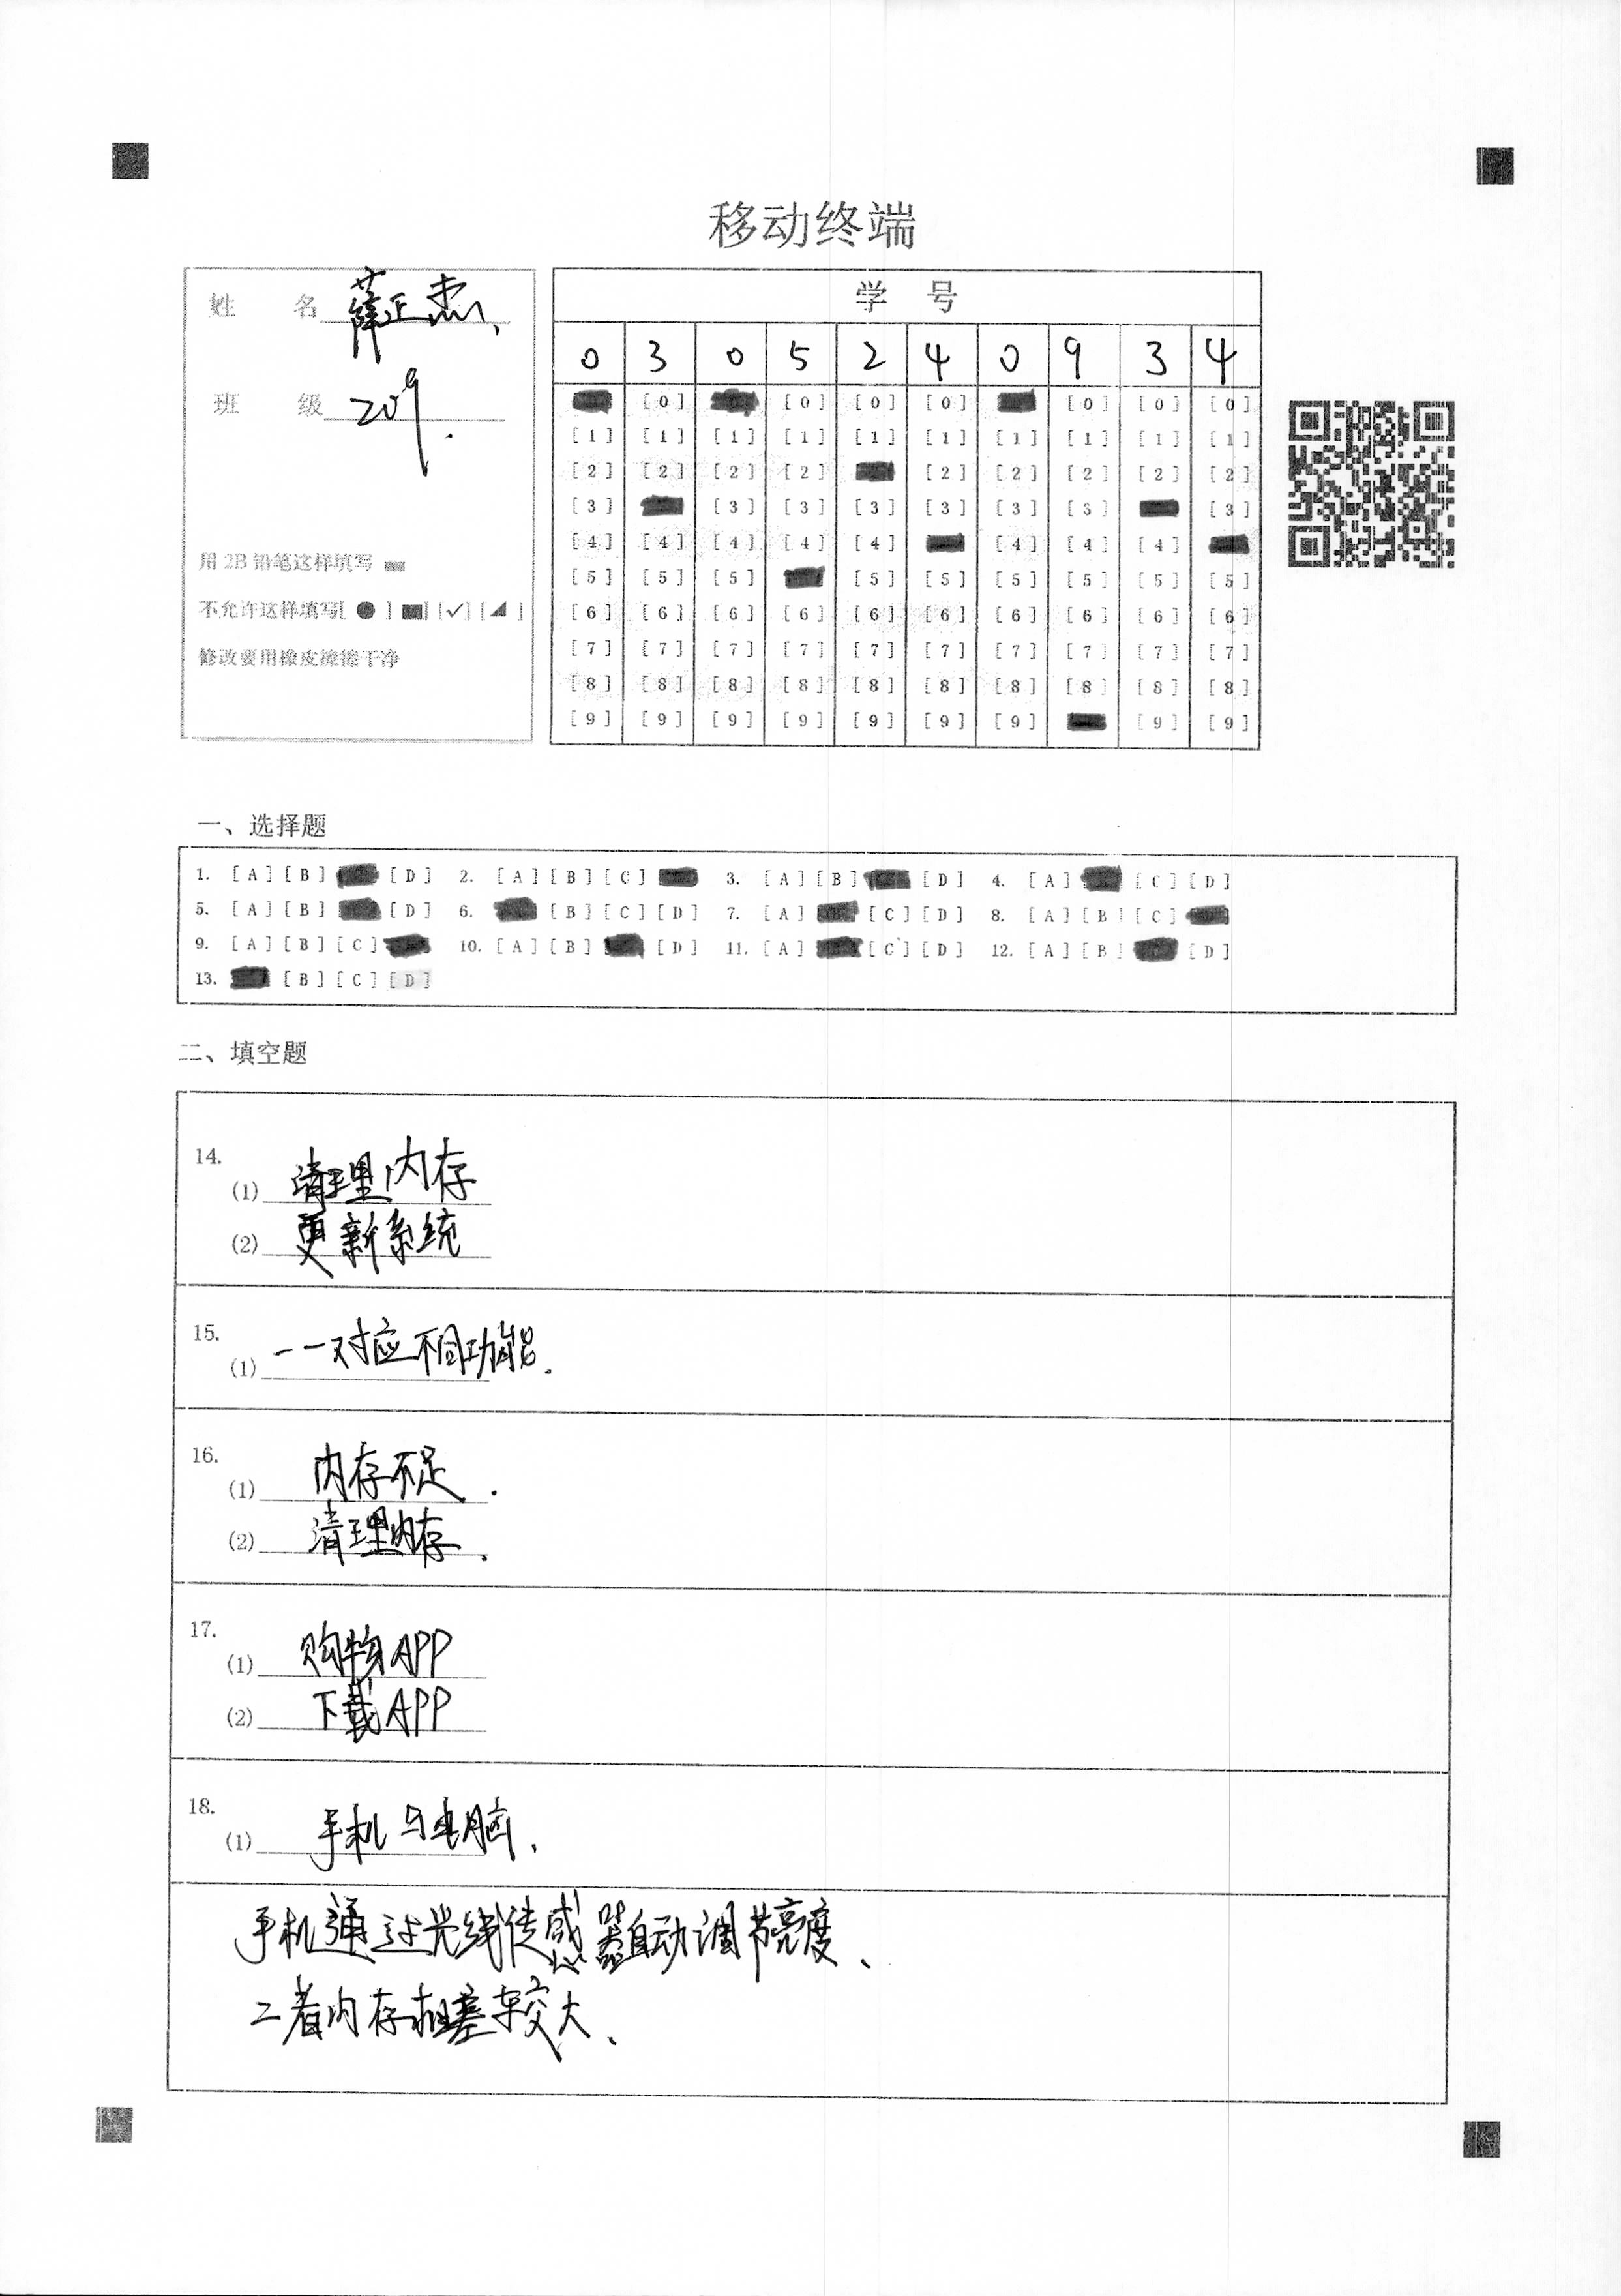 移动终端
姓 名 薛正杰
班 级 209.
用 2B 铅笔这样填写
不允许这样填写[ ● ] [ ■ ] [✓] [ ◢ ]
修改要用橡皮擦擦干净
学 号
0 3 0 5 2 4 0 9 3 4
[0] [0] [0] [0] [0] [0] [0]
[1] [1] [1] [1] [1] [1] [1] [1] [1] [1]
[2] [2] [2] [2] [2] [2] [2] [2] [2]
[3] [3] [3] [3] [3] [3] [3] [3]
[4] [4] [4] [4] [4] [4] [4] [4]
[5] [5] [5] [5] [5] [5] [5] [5] [5]
[6] [6] [6] [6] [6] [6] [6] [6] [6] [6]
[7] [7] [7] [7] [7] [7] [7] [7] [7] [7]
[8] [8] [8] [8] [8] [8] [8] [8] [8] [8]
[9] [9] [9] [9] [9] [9] [9] [9] [9]
一、选择题
1. [A] [B] [D] 2. [A] [B] [C] 3. [A] [B] [D] 4. [A] [C] [D]
5. [A] [B] [D] 6. [B] [C] [D] 7. [A] [C] [D] 8. [A] [B] [C]
9. [A] [B] [C] 10. [A] [B] [D] 11. [A] [C] [D] 12. [A] [B] [D]
13. [B] [C] [D]
二、填空题
14.
(1) 清理内存
(2) 更新系统
15.
(1) 一一对应不同功能.
16.
(1) 内存不足.
(2) 清理内存.
17.
(1) 购物APP
(2) 下载APP
18.
(1) 手机与电脑、
手机通过光线传感器自动调节亮度、
二者内存相差较大、